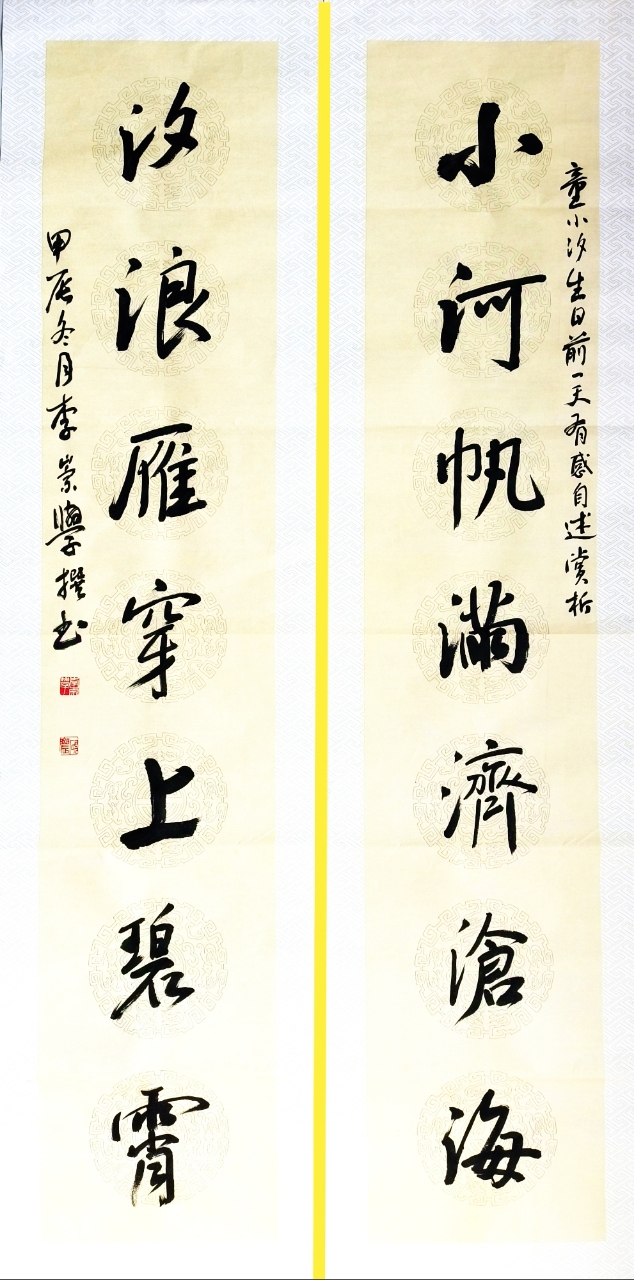 童小汐生日前一天有感自述赏析
小河帆满濟滄海
汐浪雁穿上碧霄
甲辰冬月李崇學撰书